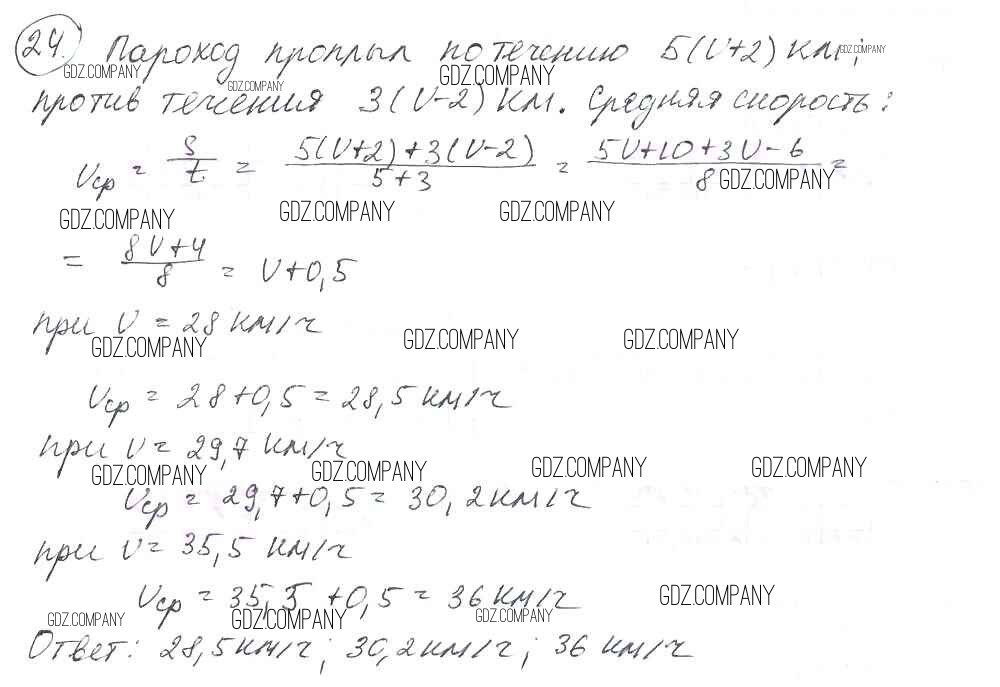 24. Пароход проплыл по течению 5(V+2) км;
GDZ.COMPANY GDZ.COMPANY GDZ.COMPANY GDZ.COMPANY
против течения 3(V-2) км. Средняя скорость:
Vср = S/t = (5(V+2)+3(V-2))/(5+3) = (5V+10+3V-6)/8 =
GDZ.COMPANY
GDZ.COMPANY GDZ.COMPANY GDZ.COMPANY
= (8V+4)/8 = V+0,5
при V = 28 км/ч
GDZ.COMPANY GDZ.COMPANY GDZ.COMPANY
Vср = 28+0,5 = 28,5 км/ч
при V = 29,7 км/ч
GDZ.COMPANY GDZ.COMPANY GDZ.COMPANY GDZ.COMPANY
Vср = 29,7+0,5 = 30,2 км/ч
при V = 35,5 км/ч
Vср = 35,5 +0,5 = 36 км/ч
GDZ.COMPANY
GDZ.COMPANY GDZ.COMPANY GDZ.COMPANY
Ответ: 28,5 км/ч; 30,2 км/ч; 36 км/ч